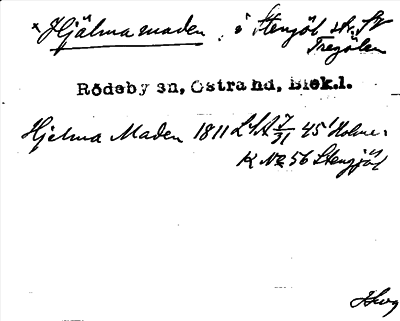 × Hjälmamaden, i Stengöl
Rödeby sn, Östra hd, Blek.l.
Hjelma Maden 1811 LSA 7/31 45 Holme
K № 56 Stengöl